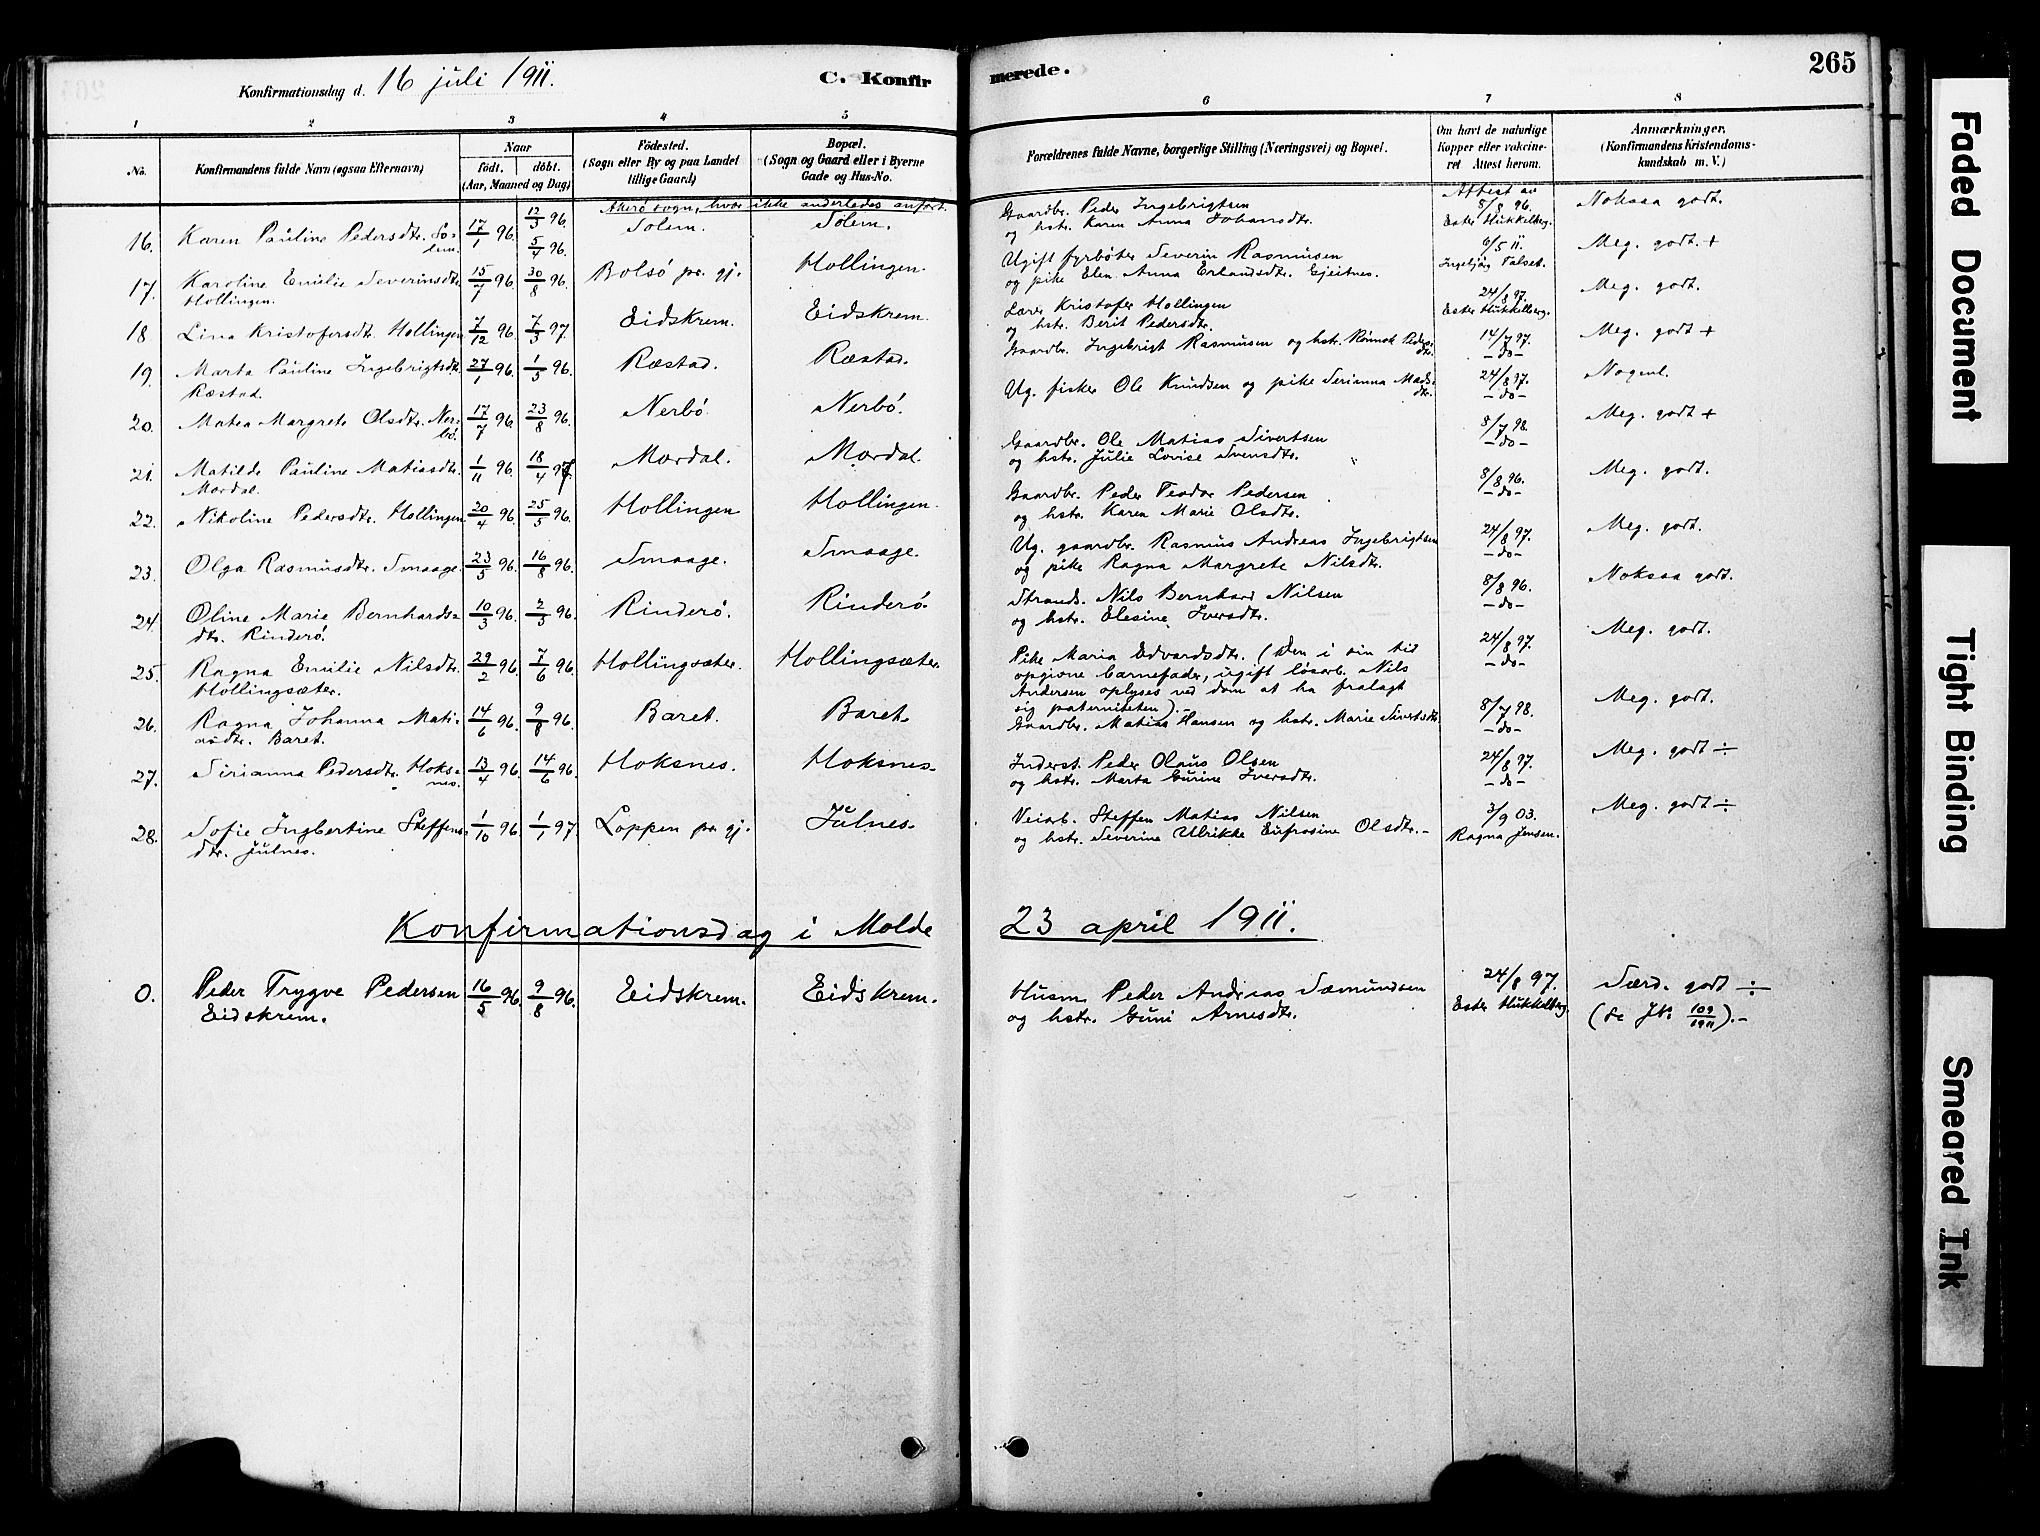 Konfirmationsdag d. 16 juli 1911.
C. Konfir
merede.
265
1 2 3 4 5 6 7 8
No.
Konfirmandens fulde Navn (ogsaa Efternavn)
Naar
født. døbt.
(Aar, Maaned og Dag)
Fødested.
(Sogn eller By og paa Landet
tillige Gaard)
Bopæl.
(Sogn og Gaard eller i Byerne
Gade og Hus-No.
Forældrenes fulde Navne, borgerlige Stilling (Næringsvei) og Bopæl.
Om havt de naturlige
Kopper eller vakcine-
ret Attest herom.
Anmærkninger.
(Konfirmandens Kristendoms-
kundskab m. V.)
Akerö sogn, hvor ikke anderledes anfört.
16. Karen Pauline Pedersdtr. So-
lem. 17/1 96. 12/3 96. 5/4 96. Solem. Solem.
Gaardbr. Peder Ingebrigtsen
og hstr. Karen Anna Johansdtr.
Attest av
8/8 96.
Ester Hukkelberg.
Noksaa godt.
17. Karoline Emilie Severinsdtr.
Hollingen. 15/7 96. 30/8 96. Bolsö pr. gj. Hollingen.
Ugift fyrböter Severin Rasmusen
og pike Elen Anna Erlandsdtr. Gjeitnes.
6/5 11.
Ingebjörg Talset.
Meg. godt. +
18 Lina Kristofersdtr. Hollingen 7/12 96. 7/3 97. Eidskrem. Eidskrem.
Lærer Kristofer Hollingen
og hstr. Berit Pedersdtr.
24/8 97.
Ester Hukkelberg.
Meg. godt.
19. Marta Pauline Ingebrigtsdtr.
Ræstad. 27/1 96. 1/5 96. Ræstad. Ræstad.
Gaardbr. Ingebrigt Rasmusen og hstr. Rönnok Peders-
dtr.
14/7 97.
- do -
Meg. godt +
20. Matea Margrete Olsdtr. Ner-
bö. 17/7 96. 23/8 96. Nerbö. Nerbö.
Ug. fisker Ole Knudsen og pike Serianna Mads-
dtr.
24/8 97.
- do -
Nogenl.
21. Matilde Pauline Matiasdtr.
Mordal. 1/11 96. 18/4 97. Mordal. Mordal.
Gaardbr. Ole Matias Sivertsen
og hstr. Julie Lovise Svensdtr.
8/7 98.
- do -
Meg. godt +
22. Nikoline Pedersdtr. Hollingen 20/4 96. 25/5 96. Hollingen Hollingen.
Gaardbr. Peder Teodor Pedersen
og hstr. Karen Marie Olsdtr.
8/8 96.
- do -
Meg. godt.
23. Olga Rasmusdtr. Smaage. 23/5 96. 16/8 96. Smaage. Smaage.
Ug. gaardbr. Rasmus Andreas Ingebrigtsen
og pike Ragna Margrete Nilsdtr.
24/8 97.
- do -
Meg. godt.
24. Oline Marie Bernhards-
dtr. Rinderö. 10/3 96. 2/5 96. Rinderö. Rinderö.
Strands. Nils Bernhard Nilsen
og hstr. Elesine Iversdtr.
8/8 96.
- do -
Noksaa godt.
25. Ragna Emilie Nilsdtr.
Hollingsæter. 29/2 96. 7/6 96. Hollingsæter. Hollingsæter.
Pike Maria Edvardsdtr. (Den i sin tid
opgivne barnefader, ugift lösarb. Nils
Andersen oplyses ved dom at ha fralagt
sig paterniteten). -
24/8 97.
- do -
Meg. godt.
26. Ragna Johanna Mati-
asdtr. Baret. 14/6 96. 9/8 96. Baret. Baret.
Gaardbr. Matias Hansen og hstr. Marie Sivertsdtr.
8/7 98.
- do -
Meg. godt.
27. Sirianna Pedersdtr. Hoks-
nes. 13/4 96. 14/6 96. Hoksnes. Hoksnes.
Inderst. Peder Olaus Olsen
og hstr. Marta Gurine Iversdtr.
24/8 97.
- do -
Meg. godt ÷
28. Sofie Ingbertine Steffens-
dtr. Julnes. 1/10 96. 1/1 97. Loppen pr. gj. Julnes.
Veiarb. Steffen Matias Nilsen
og hstr. Severine Ulrikke Eufrosine Olsdtr. -
3/9 03.
Ragna Jensen.
Meg. godt ÷
Konfirmationsdag i Molde 23 april 1911.
0. Peder Trygve Pedersen
Eidskrem. 16/5 96. 9/8 96. Eidskrem. Eidskrem.
Husm. Peder Andreas Sæmundsen
og hstr. Guni Arnesdtr.
24/8 97.
Ester Hukkelberg.
Særd. godt ÷
(se JN. 109/1911). -
Faded Document
Tight Binding
Smeared Ink